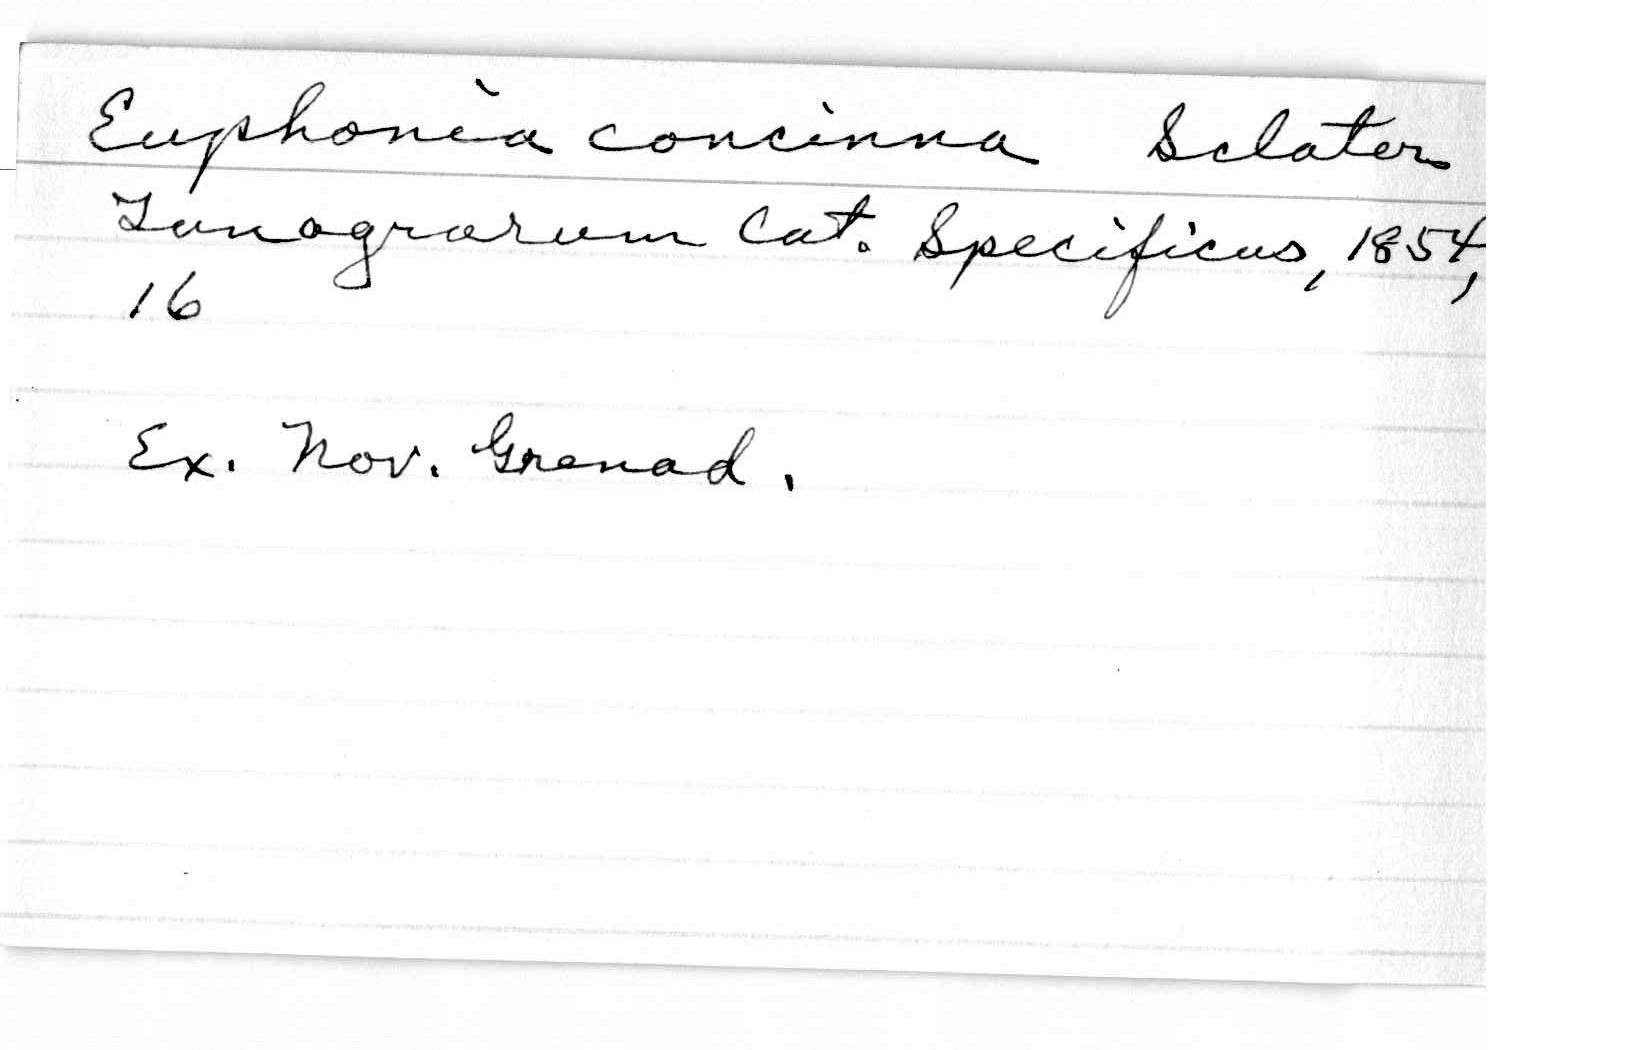 Euphonia concinna Sclater
Tanagrarum Cat. Specificus, 1854,
16
Ex. Nov. Grenad.